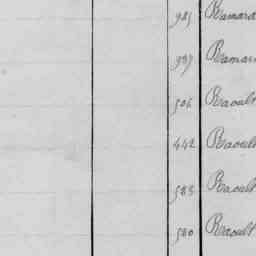 985 Ramard
397 Ramar
506 Raoult
442 Raoult
585 Raoult
580 Raoult